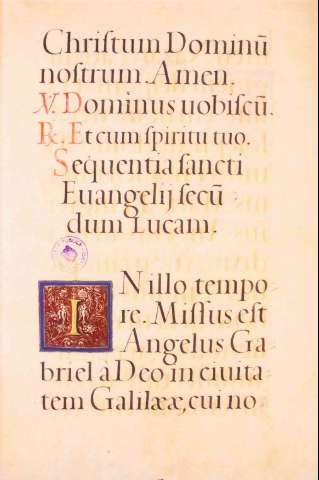 Chriſtum Dominū
noſtrum. Amen.
℣. Dominus uobiſcū.
℟. Et cum ſpiritu tuo.
Sequentia ſancti
Euangelij ſecū
dum Lucam.
IN illo tempo
re. Miſſus eſt
Angelus Ga
briel à Deo in ciuita
tem Galilææ, cui no